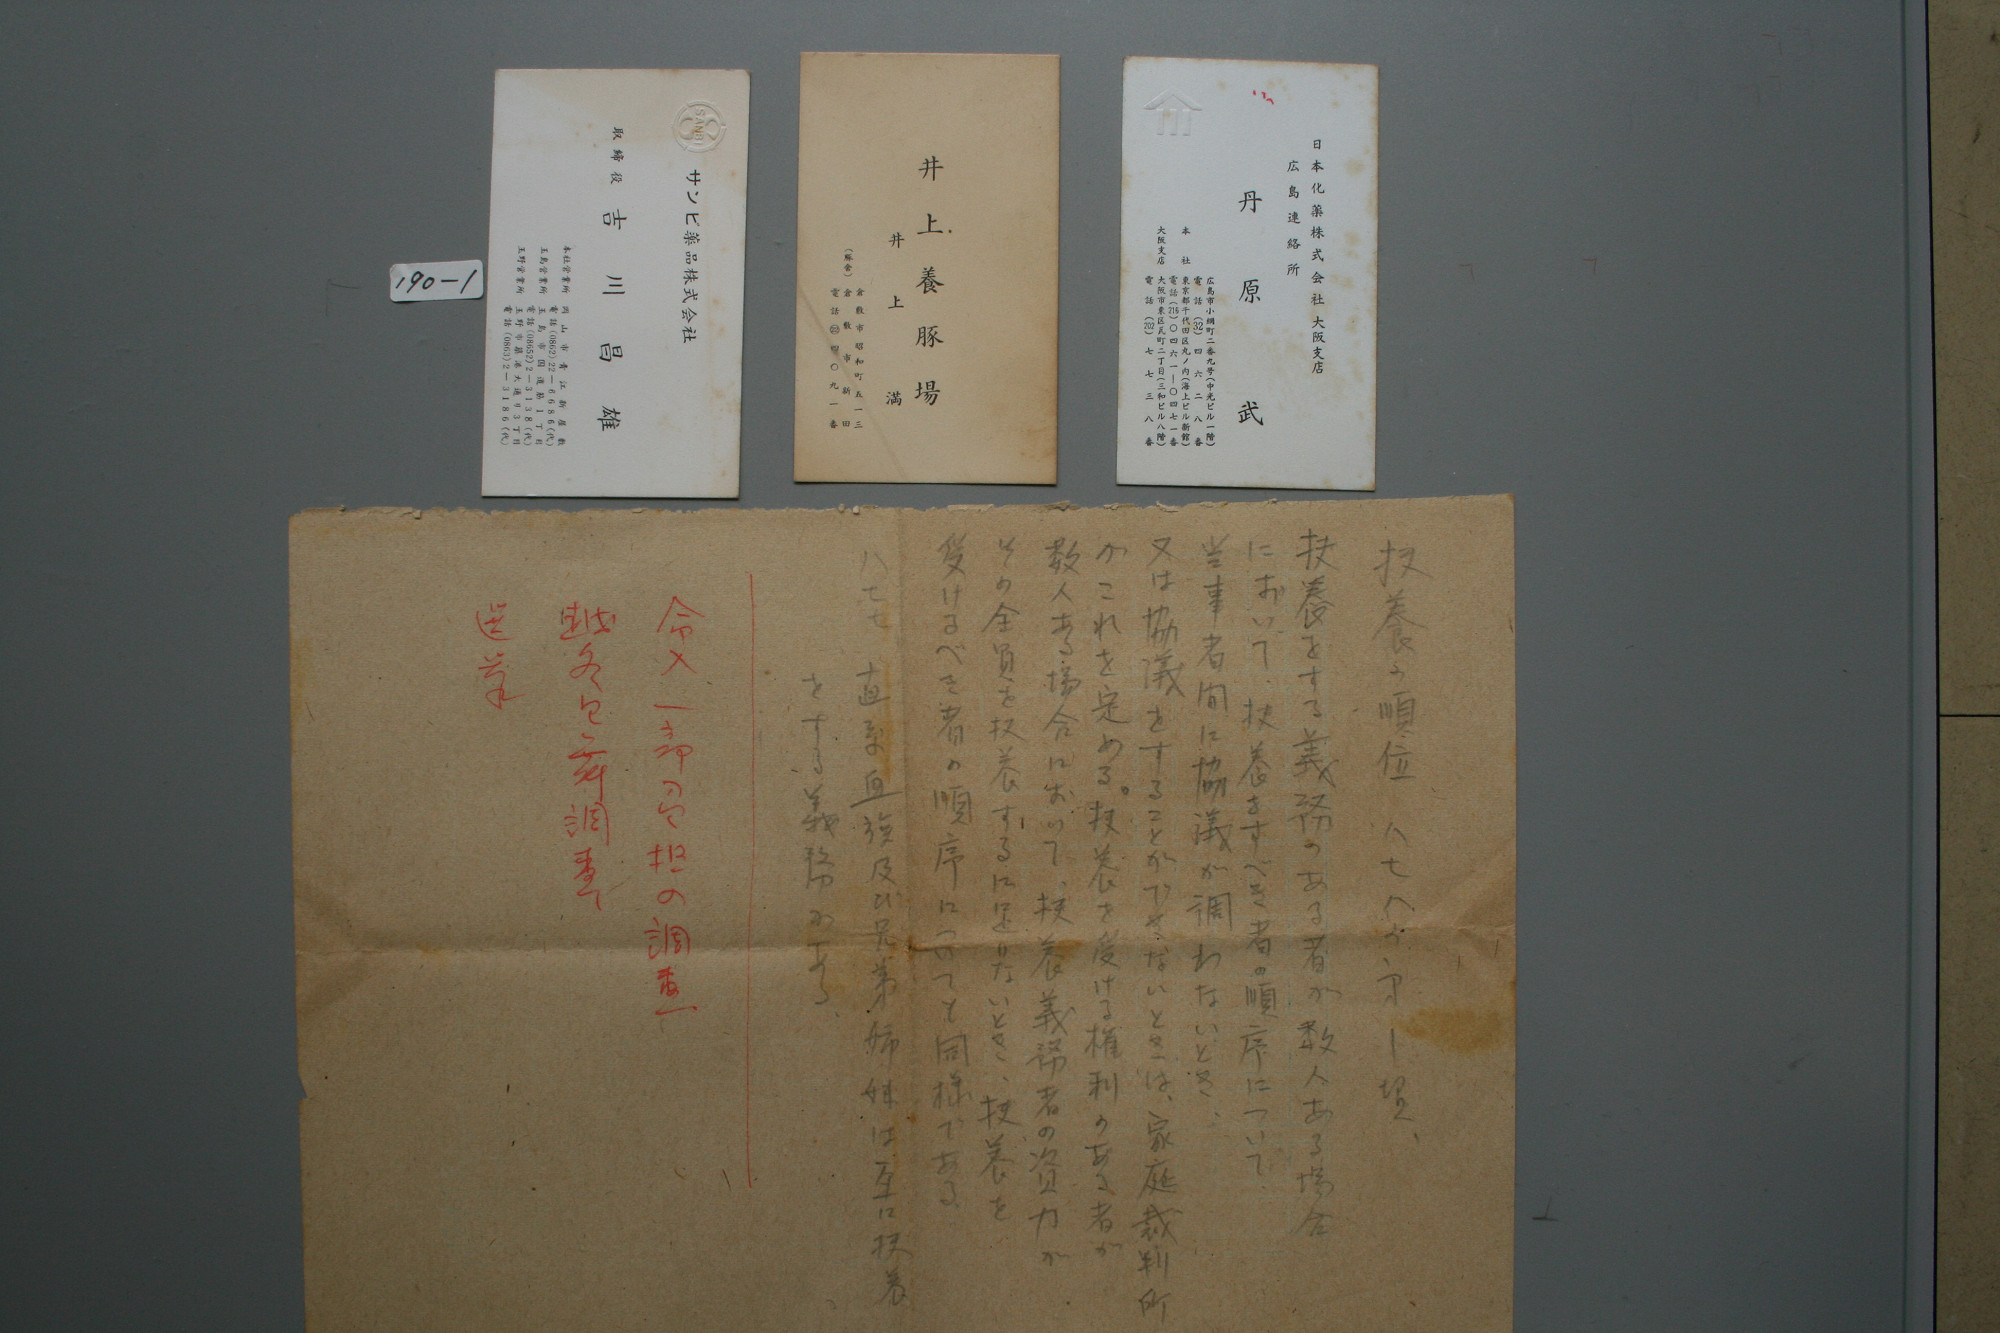 190-1
日本化薬株式会社 大阪支店
広島連絡所
丹原 武
広島市小網町二番九号(中光ビル一階)
電話(32)四六二八番
本社 東京都千代田区丸ノ内(海上ビル新館)
電話(216)〇四六一―〇四七一番
大阪支店 大阪市東区瓦町二丁目(三和ビル八階)
電話(202)七七三八番
井上養豚場
井上 満
倉敷市昭和町五一三
(豚舎)倉敷市新田
四〇九一番
SANBI
サンビ薬品株式会社
取締役 吉川昌雄
本社営業所 岡山市青江新屋敷
電話(0862)22―6686(代)
玉島営業所 玉島市国道筋1丁目
電話(08652)2―3138(代)
玉野営業所 玉野市築港大通り3丁目
電話(0863)2―3186(代)
扶養の順位 八七八
扶養をする義務のある者が数人ある場合
において、扶養をすべき者の順序について
当事者間に協議が調わないとき、
又は協議をすることができないときは、家庭裁判所
がこれを定める。扶養を受ける権利のある者が
数人ある場合において、扶養義務者の資力が
その全員を扶養するに足りないとき、扶養を
受けるべき者の順序についても同様である
八七七 直系血族及び兄弟姉妹は互に扶養
をする義務がある、
一部負担の調査
調査
選挙